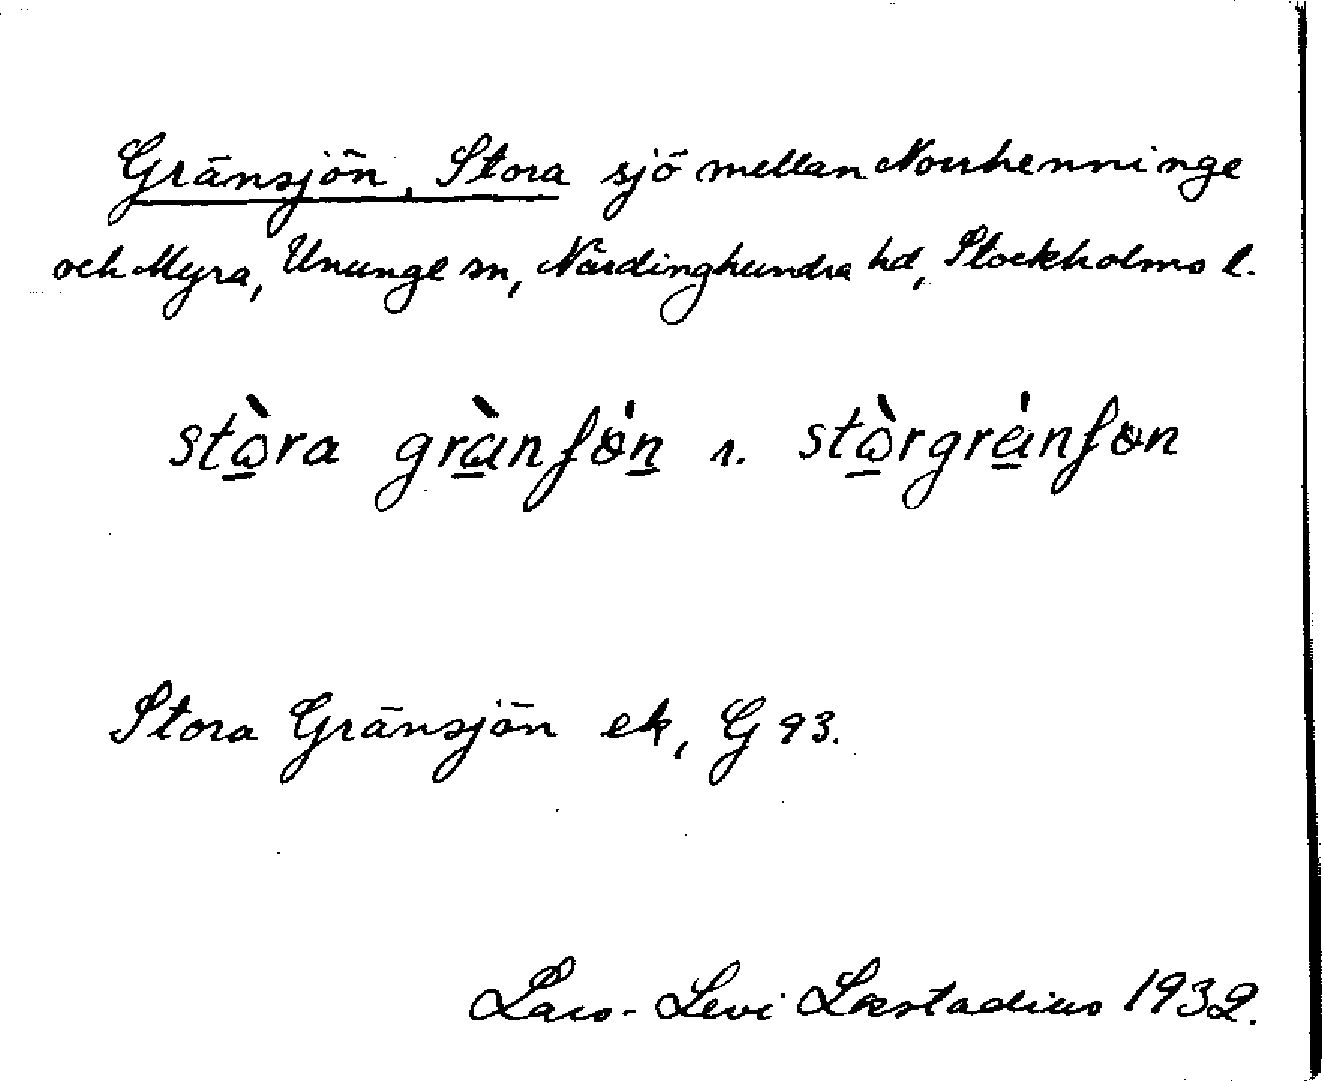 Gränsjön, Stora sjö mellan Norrhenninge
och Myra, Ununge sn, Närdinghundra hd, Stockholms l.
stὼra grànʃɵ́n 1. stὼrgránʃɵn
Stora Gränsjön ek, G 93.
Lars-Levi Læstadius 1932.